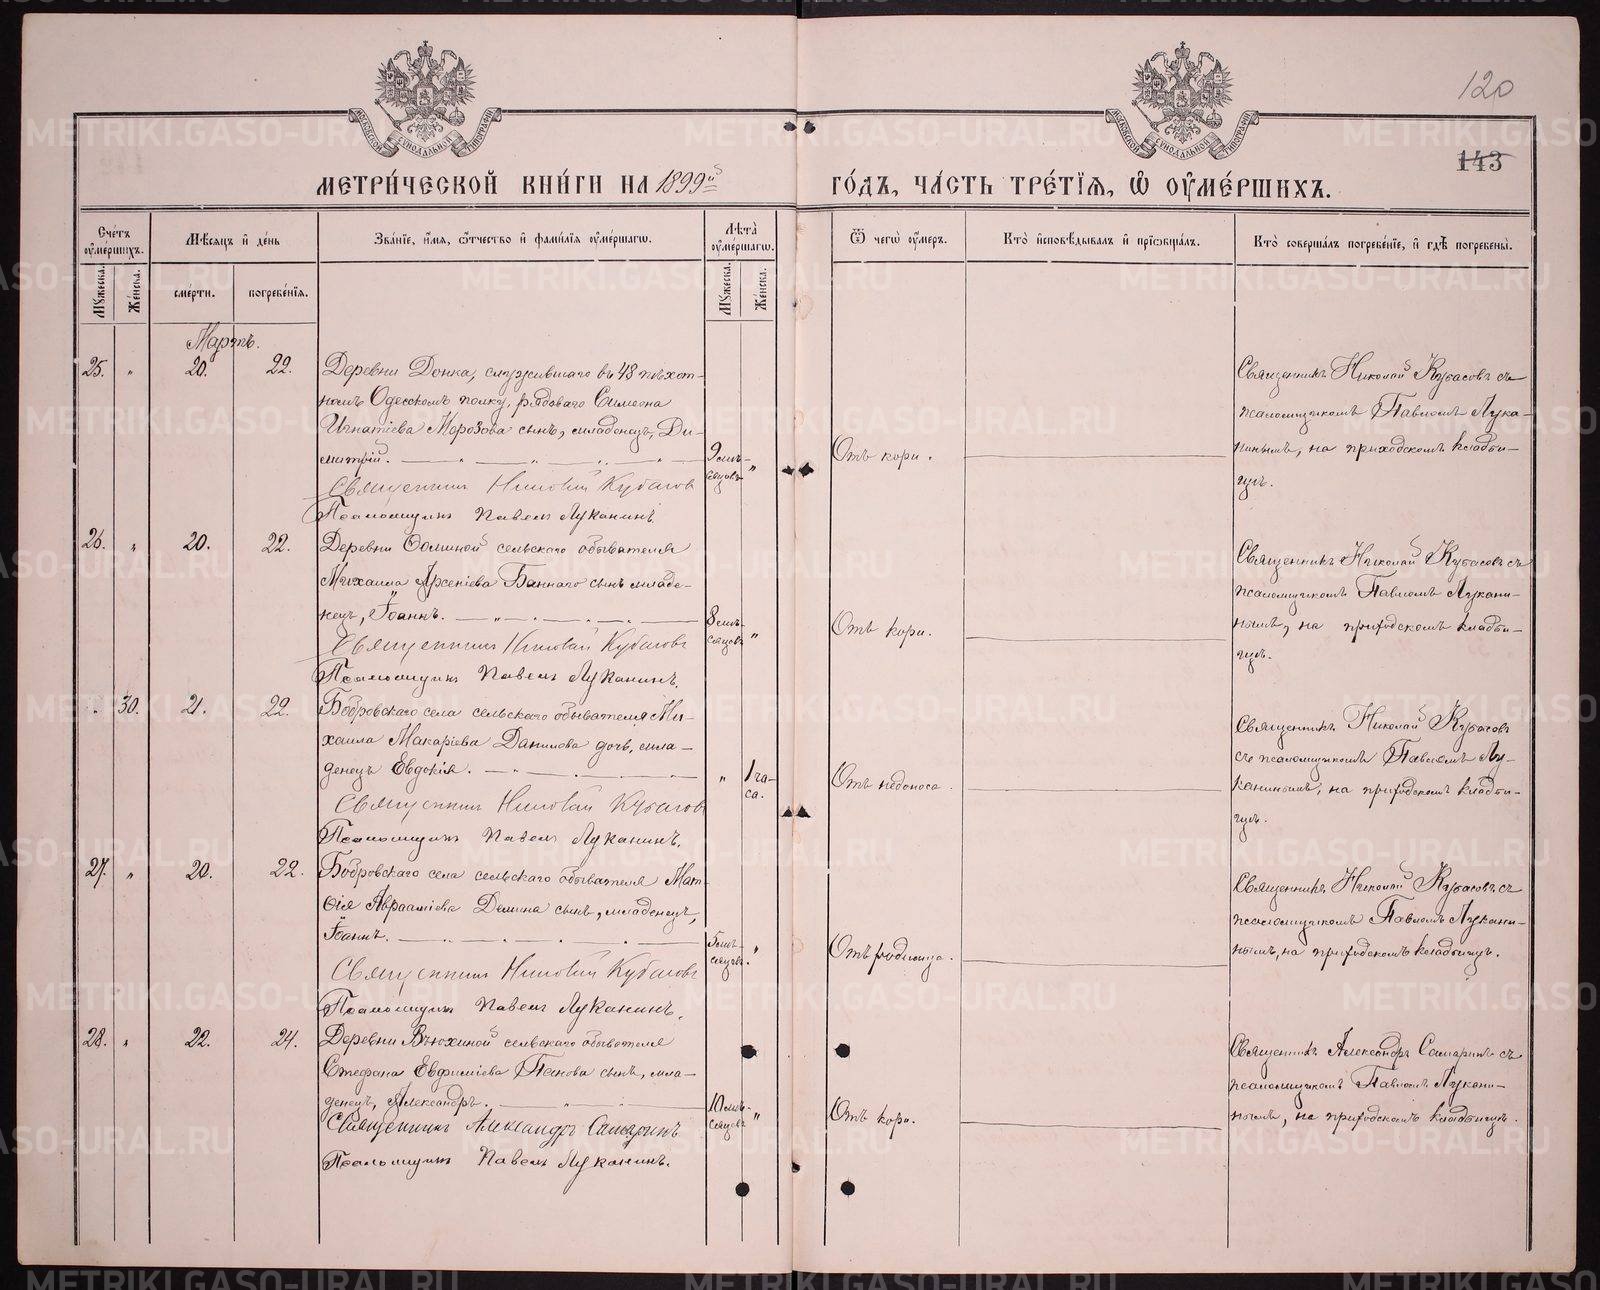 120
143
МЕТРИ́ЧЕСКОЙ КНИ́ГИ НА 1899й
ГО́ДЪ, ЧА́СТЬ ТРЕ́ТІѦ, Ѡ҆ ОУ҆МЕ́РШИХЪ.
Сче́тъ оу҆ме́ршихъ.
Мꙋ́жеска.
Же́нска.
Мѣ́сѧцъ и҆ де́нь
сме́рти.
погребе́нїѧ.
Зва́нїе, и҆́мѧ, ѻ҆́тчество и҆ фами́лїѧ оу҆ме́ршагѡ.
Лѣ́та оу҆ме́ршагѡ.
Мꙋ́жеска.
Же́нска.
Ѿ чегѡ̀ оу҆́меръ.
Кто̀ и҆сповѣ́дывалъ и҆ прїѡбща́лъ.
Кто̀ соверша́лъ погребе́нїе, и҆ гдѣ̀ погребены̀.
Мартъ.
25. " 20. 22.
Деревни Донка, служившаго въ 48 пѣхот-
номъ Одесскомъ полку, рядоваго Симеона
Игнатіева Морозова сынъ, младенецъ, Ди-
митрій.
Священникъ Николай Кубасовъ
Псаломщикъ Павелъ Луканинъ.
9 мѣ-
сяцовъ "
Отъ кори.
Священникъ Николай Кубасовъ съ
псаломщикомъ Павломъ Лука-
нинымъ, на приходскомъ кладби-
щѣ.
26. " 20. 22.
Деревни сельскаго обывателя
Михаила Арсеніева Баннаго сынъ младе-
нецъ, Іоаннъ.
Священникъ Николай Кубасовъ
Псаломщикъ Павелъ Луканинъ.
8 мѣ-
сяцовъ "
Отъ кори.
Священникъ Николай Кубасовъ съ
псаломщикомъ Павломъ Лукани-
нымъ, на приходскомъ кладби-
щѣ.
" 30. 21. 22.
Бобровскаго села сельскаго обывателя Ми-
хаила Макаріева Данилова дочь, мла-
денецъ Евдокія.
Священникъ Николай Кубасовъ
Псаломщикъ Павелъ Луканинъ.
" 1 ча-
са.
Отъ недоноса.
Священникъ Николай Кубасовъ
съ псаломщикомъ Павломъ Лу-
канинымъ, на приходскомъ кладби-
щѣ.
27. " 20. 22.
Бобровскаго села сельскаго обывателя Мат-
ѳія Авраамieва Демина сынъ, младенецъ,
Іоаннъ.
Священникъ Николай Кубасовъ
Псаломщикъ Павелъ Луканинъ.
5 мѣ-
сяцовъ. "
Отъ родимца.
Священникъ Николай Кубасовъ съ
псаломщикомъ Павломъ Лукани-
нымъ, на приходскомъ кладбищѣ.
28. " 22. 24.
Деревни Вьюхиной сельскаго обывателя
Стефана Евфиміева Панова сынъ, мла-
денецъ, Александръ.
Священникъ Александръ Самаринъ
Псаломщикъ Павелъ Луканинъ.
10 мѣ-
сяцовъ "
Отъ кори.
Священникъ Александръ Самаринъ съ
псаломщикомъ Павломъ Лукани-
нымъ, на приходскомъ кладбищѣ.
METRIKI.GASO-URAL.RU